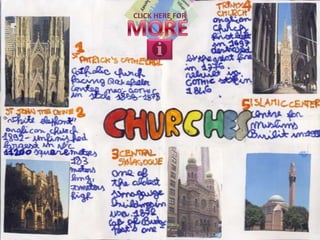 CLICK HERE FOR
MORE
i
1
PATRICK'S CATHEDRAL
Catholic church
facing Rockefeller
Center neo-gothic
in style 1858-1878
TRINITY 4
CHURCH
anglican
church
first built
in 1697
destroyed
by the great fire
in 1776
rebuilt in
gothic style in
1846
ST JOHN THE DIVINE 2
"white elephant"
anglican church
1892 - unfinished
largest in NYC
11200 square metres
183
meters
long,
meters
high
CHURCHES
3 CENTRAL
SYNAGOGUE
one of
the oldest
synagogue
buildings in
use. 1872
copy of Budapest's one
5 ISLAMIC CENTER
Centre for
Muslims
Built in 1991